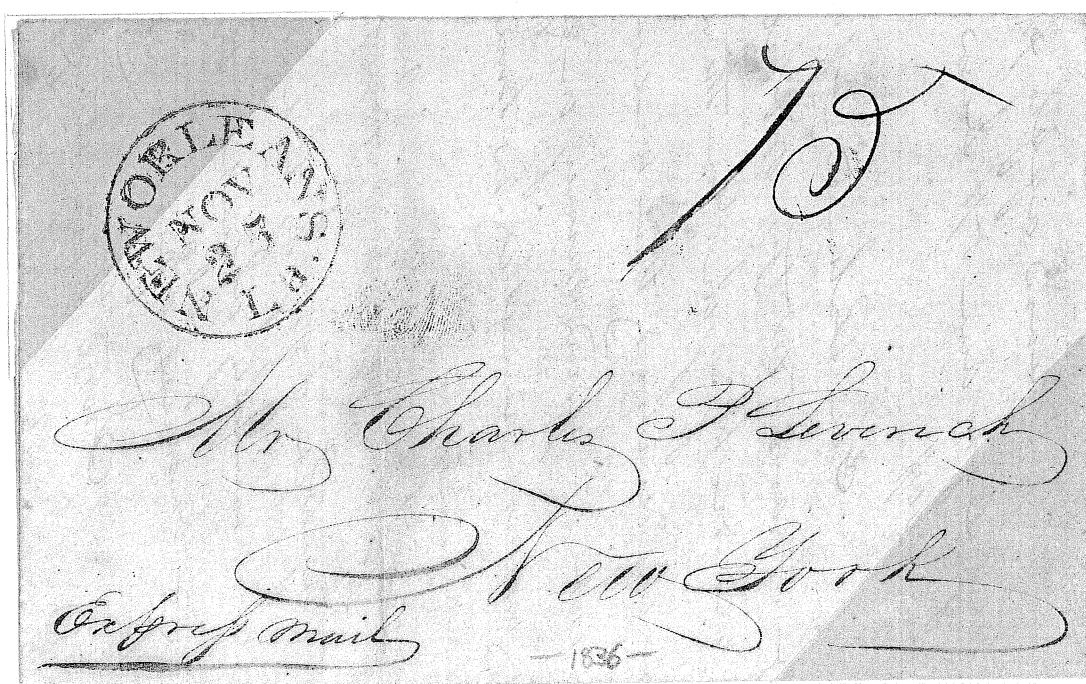 NEW ORLEANS. La
NOV
25
75
Mr Charles P Leverich
New York
Express Mail
— 1836 —